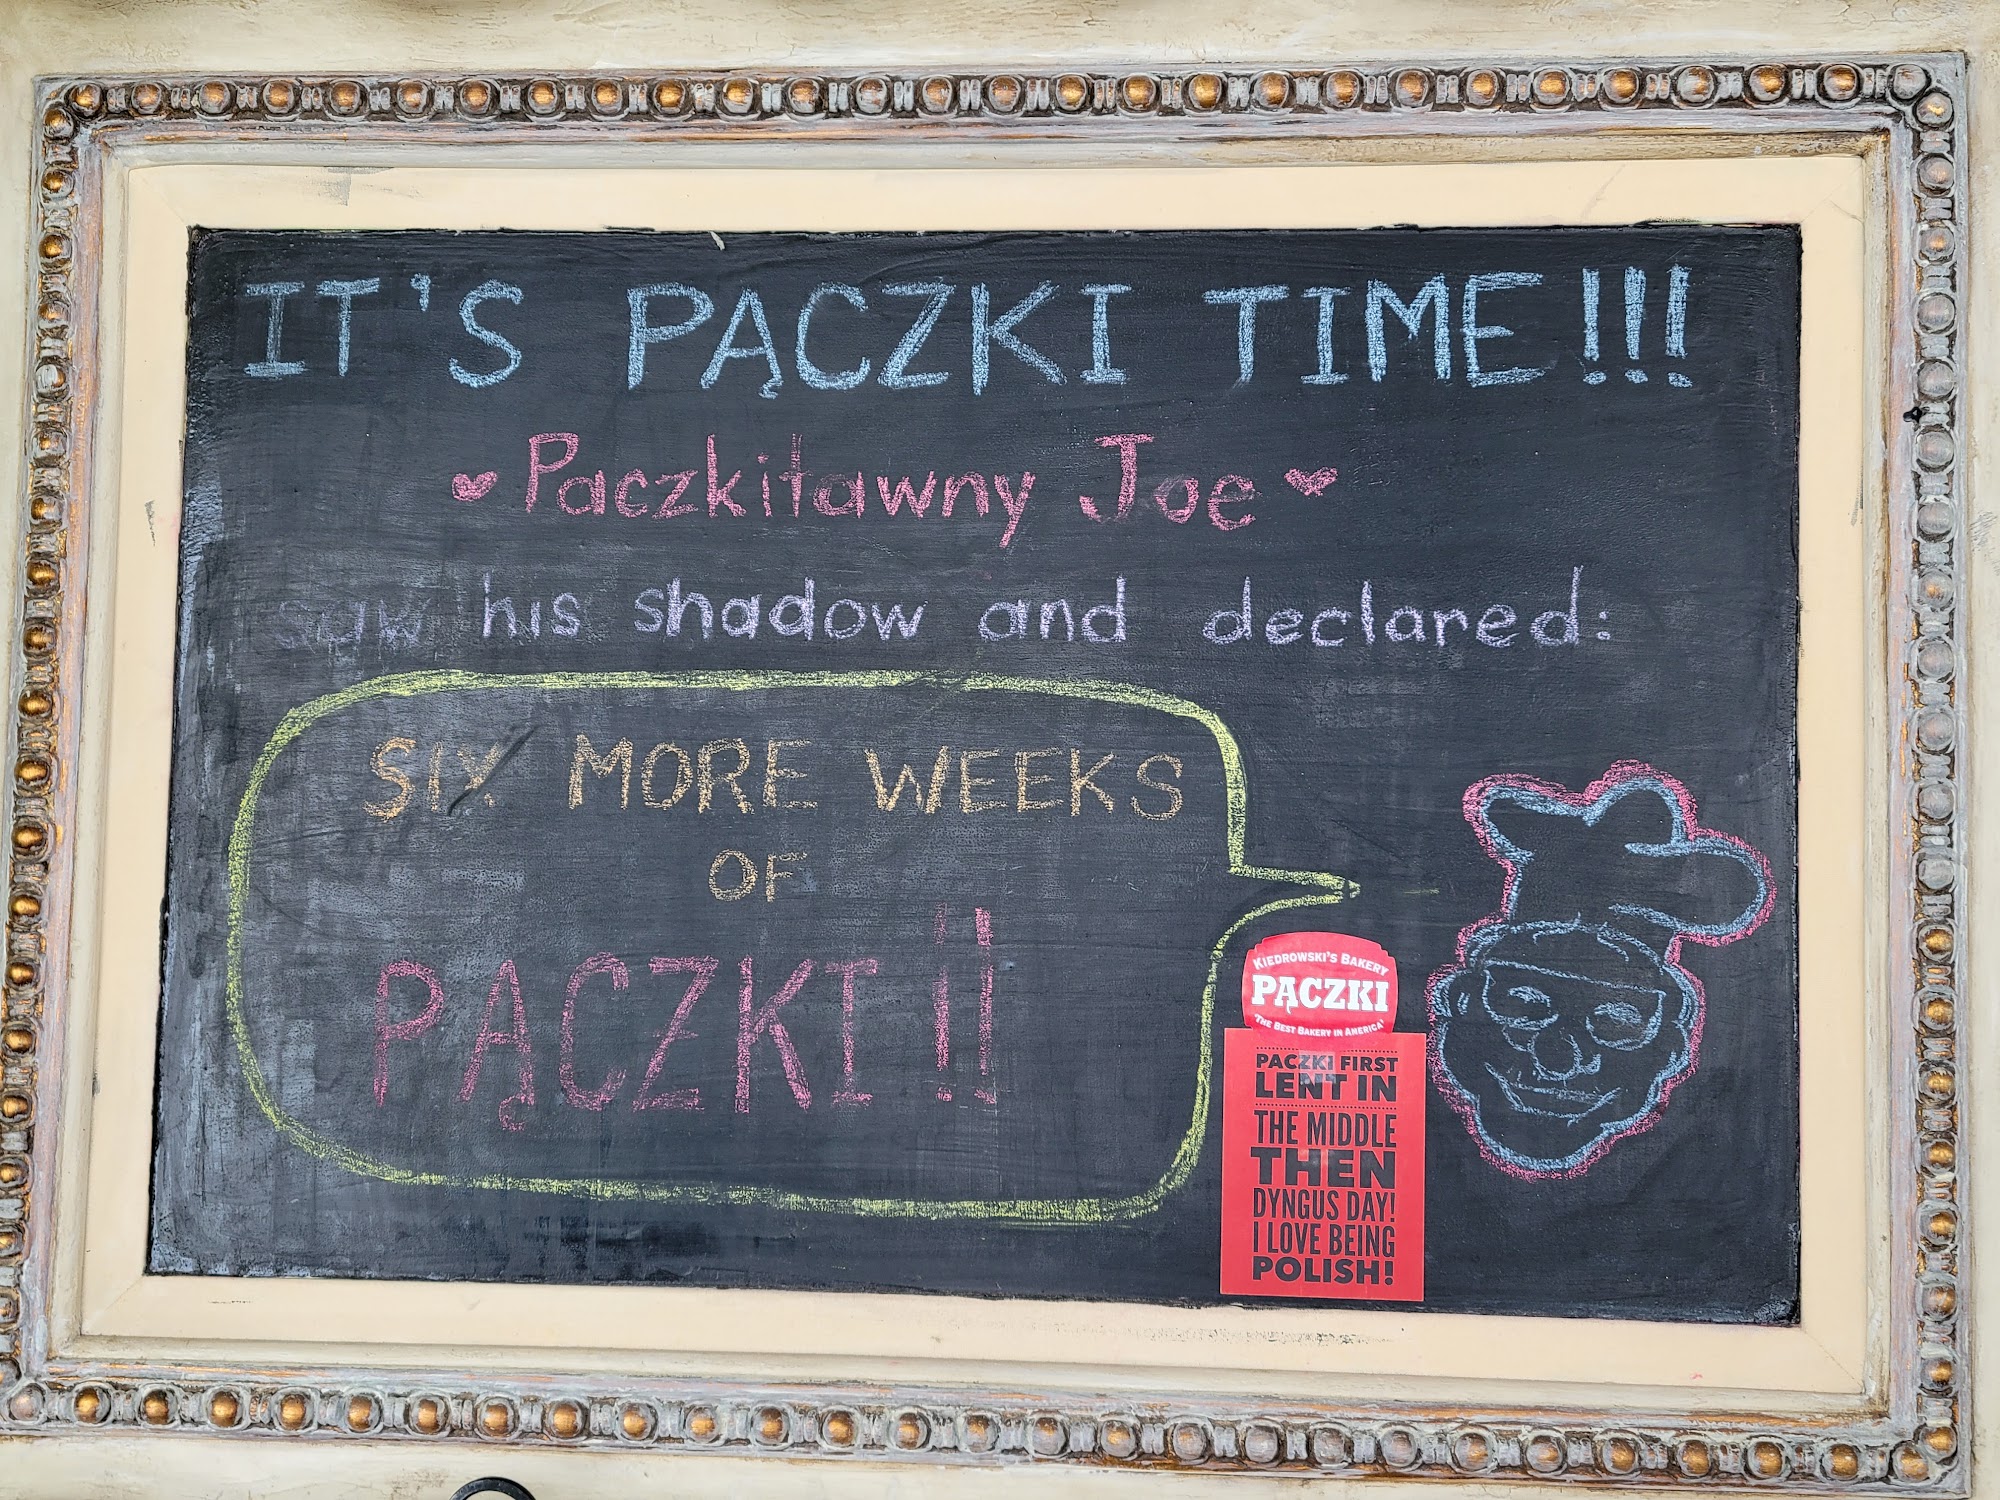 IT'S PĄCZKI TIME!!!
Paczkitawny Joe
saw his shadow and declared:
SIX MORE WEEKS
OF
PĄCZKI!!
KIEDROWSKI'S BAKERY
PĄCZKI
"THE BEST BAKERY IN AMERICA"
PACZKI FIRST
LENT IN
THE MIDDLE
THEN
DYNGUS DAY!
I LOVE BEING
POLISH!